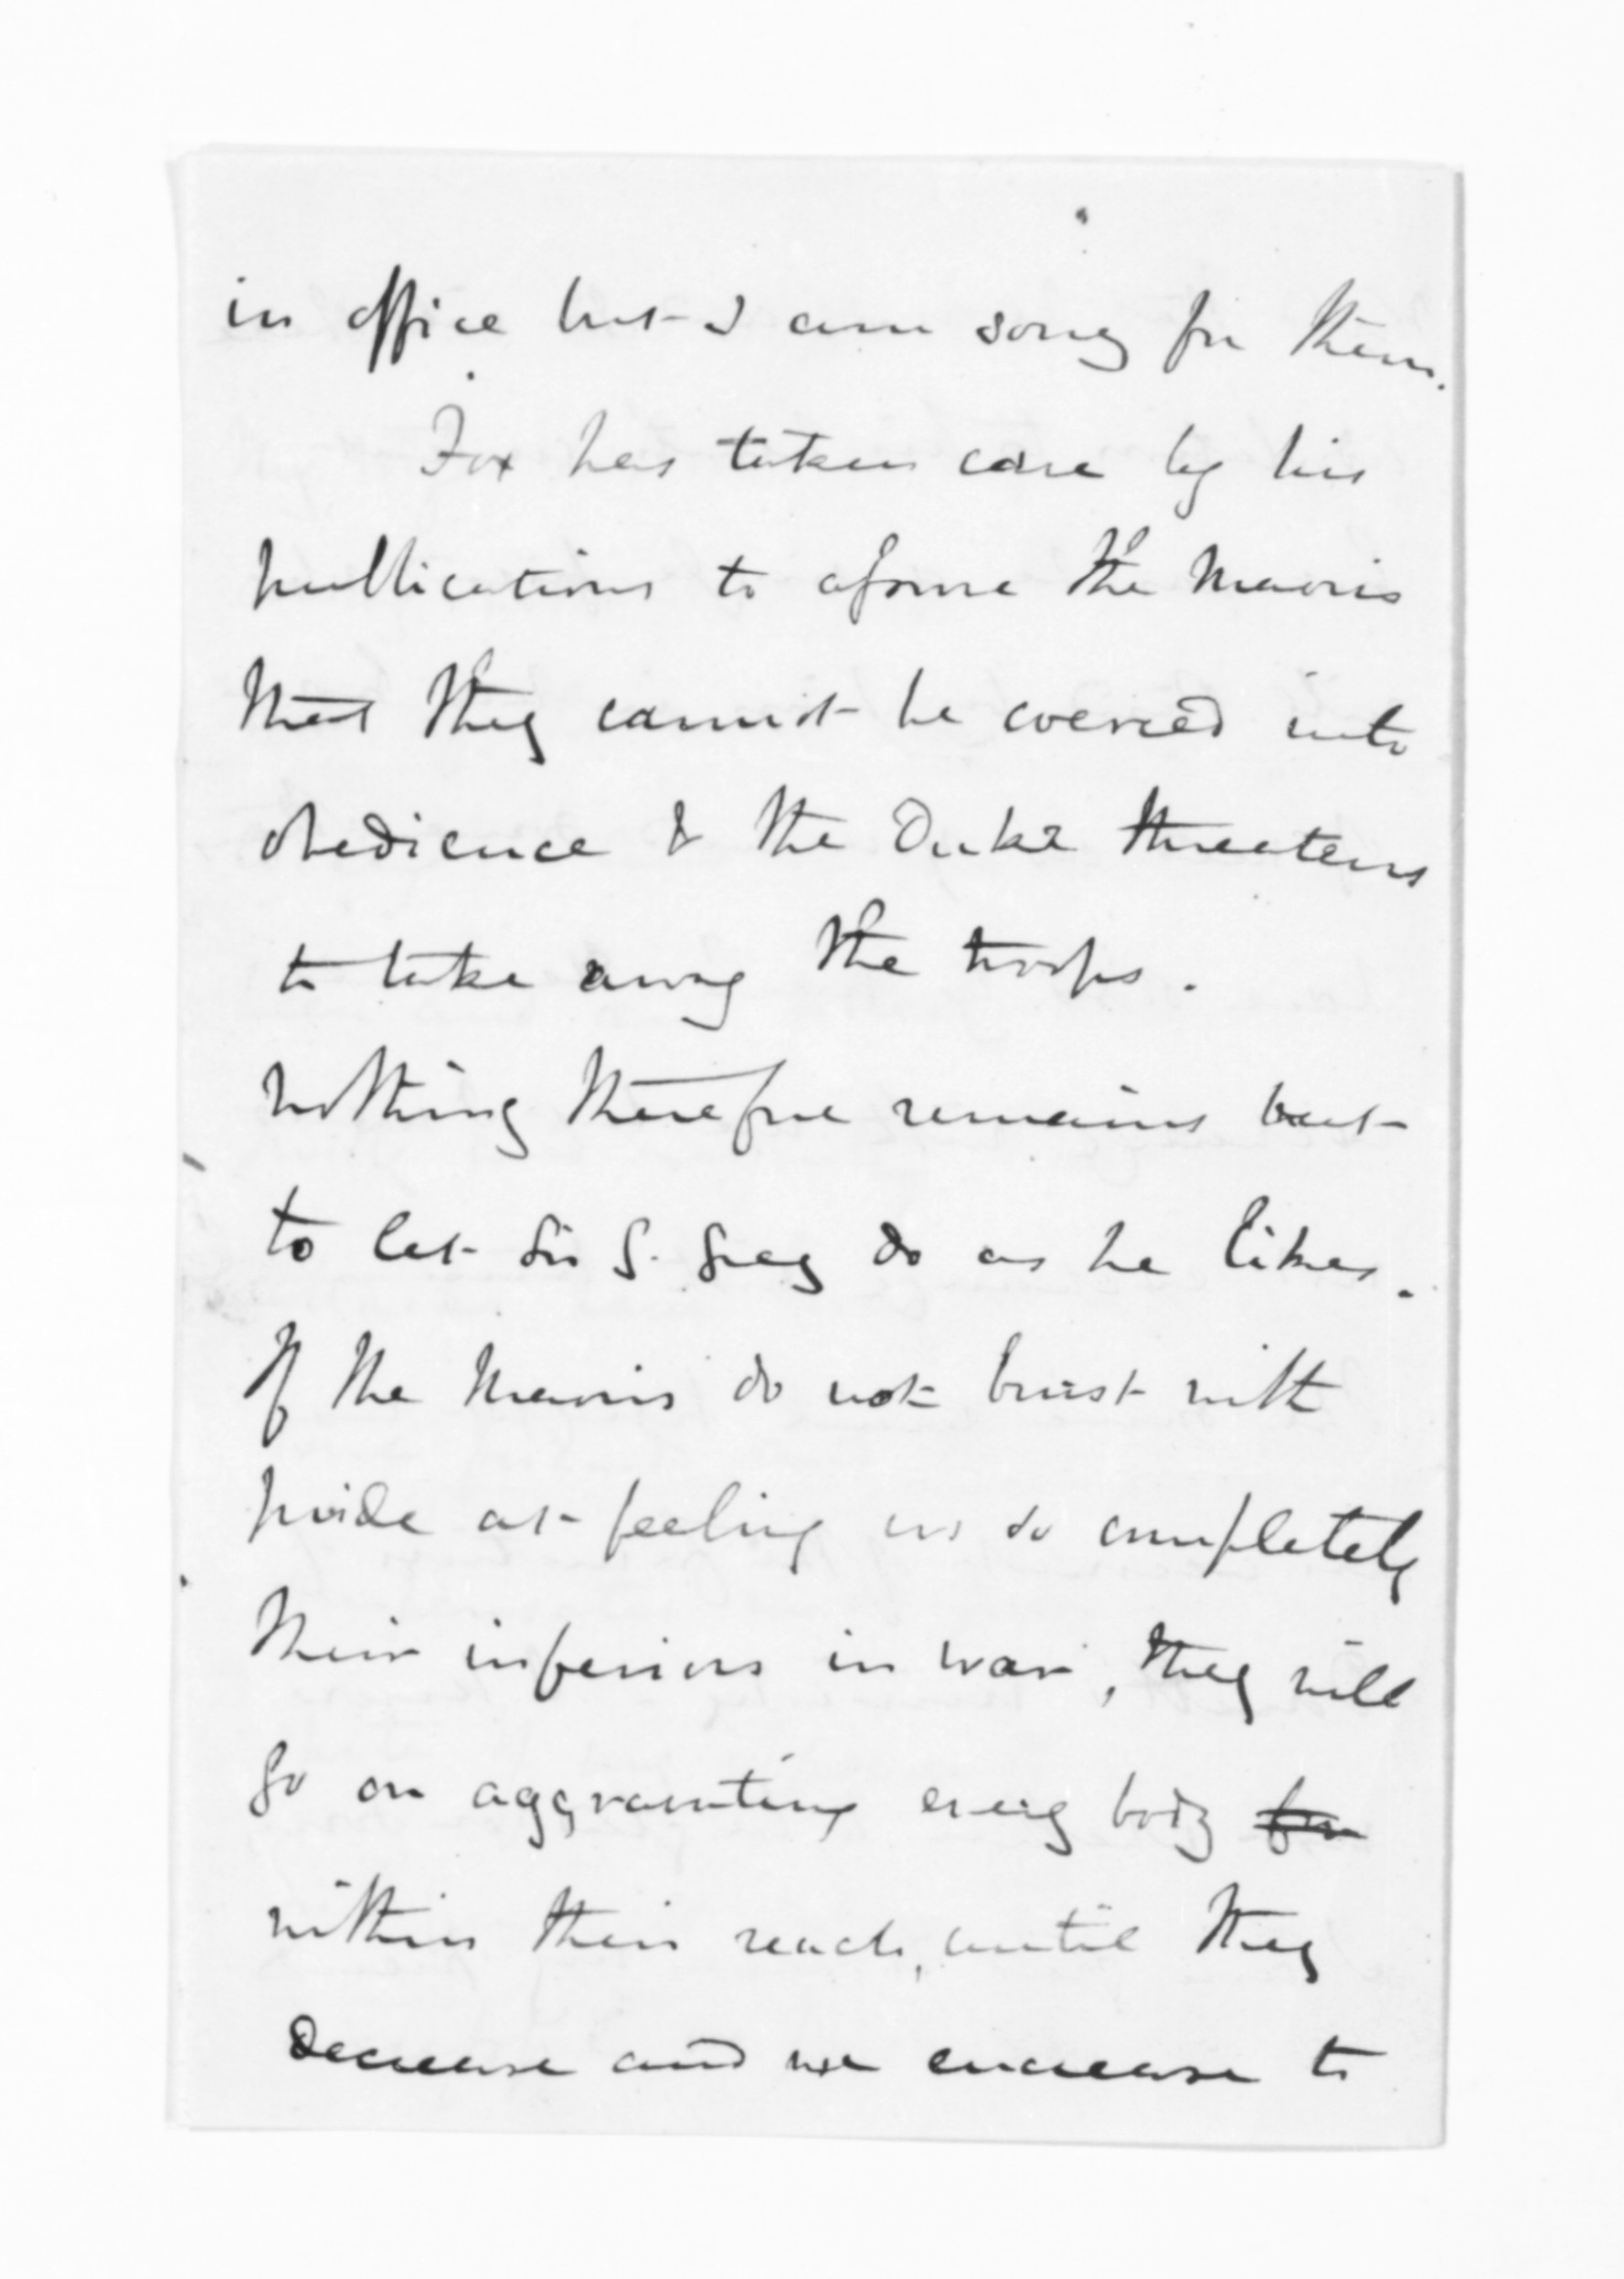 in office but I am sorry for them.
Fox has taken care by his
publications to assure the Maoris
that they cannot be coerced into
obedience & the Duke threatens
to take away the troops.
Nothing therefore remains but
to let Sir G. Grey do as he likes.
If the Maoris do not burst with
pride at feeling us so completely
their inferiors in war, they will
go on aggravating every body for
within their reach, until they
decrease and we encrease to